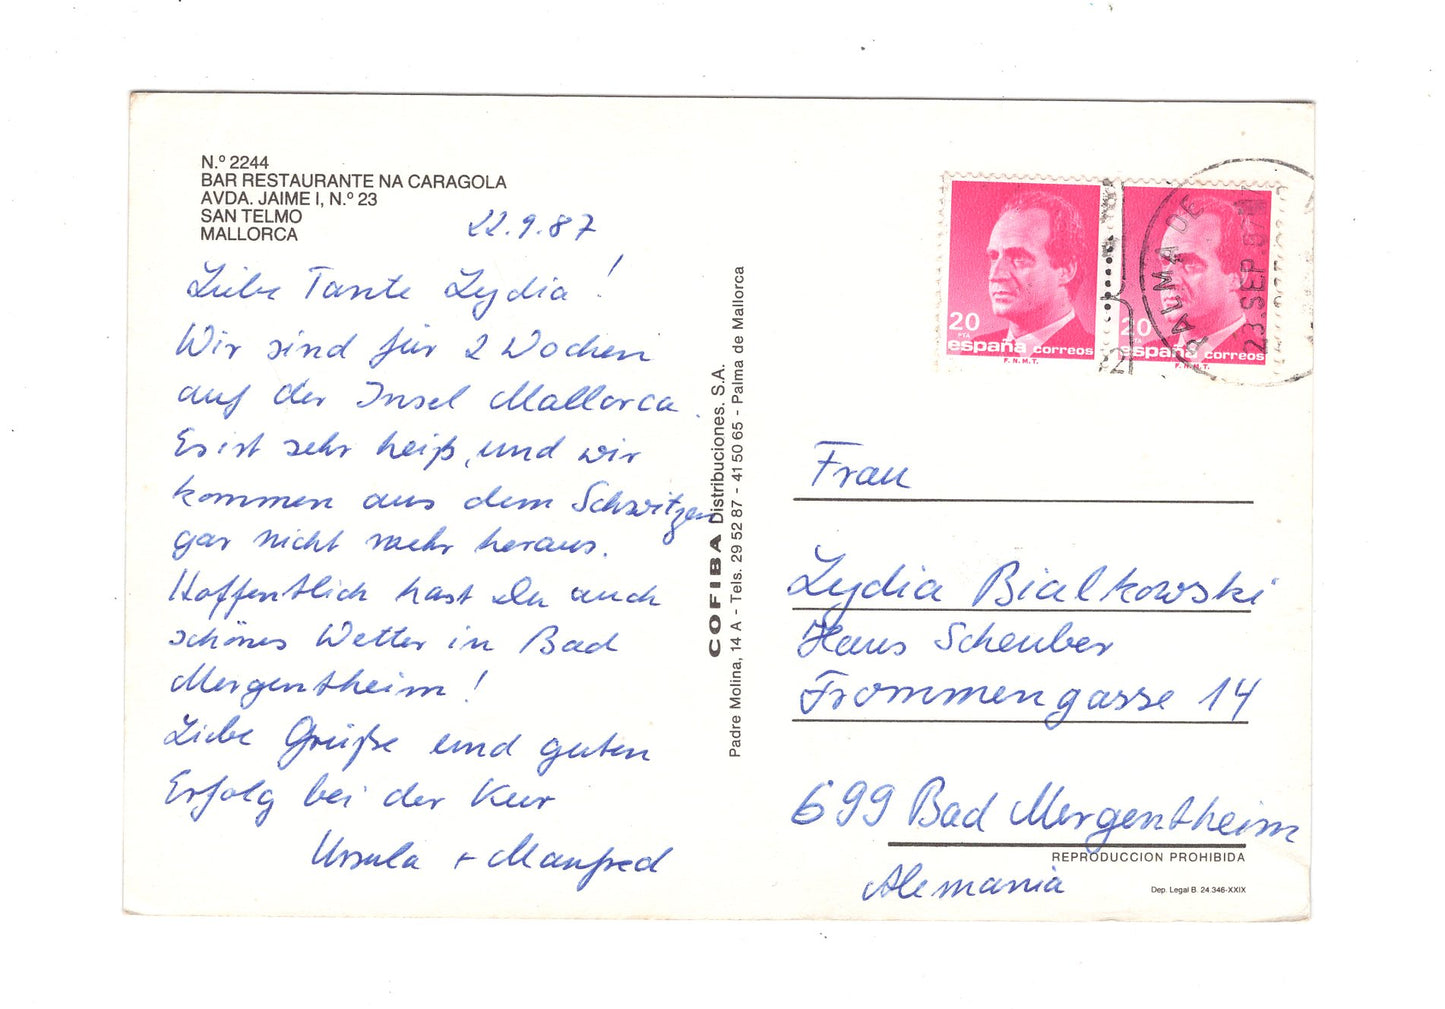 N.º 2244
BAR RESTAURANTE NA CARAGOLA
AVDA. JAIME I, N.º 23
SAN TELMO
MALLORCA
22.9.87
Liebe Tante Lydia!
Wir sind für 2 Wochen
auf der Insel Mallorca.
Es ist sehr heiß, und wir
kommen aus dem Schwitzen
gar nicht mehr heraus.
Hoffentlich hast Du auch
schönes Wetter in Bad
Mergentheim!
Liebe Grüße und guten
Erfolg bei der Kur
Ursula + Manfred
COFIBA Distribuciones. S.A.
Padre Molina, 14 A - Tels. 29 52 87 - 41 50 65 - Palma de Mallorca
20
PTA
españa correos
F.N.M.T.
20
PTA
españa correos
F.N.M.T.
PALMA DE
23.SEP.87
2
Frau
Lydia Bialkowski
Haus Scheuber
Frommengasse 14
699 Bad Mergentheim
Alemania
REPRODUCCION PROHIBIDA
Dep. Legal B. 24.346-XXIX